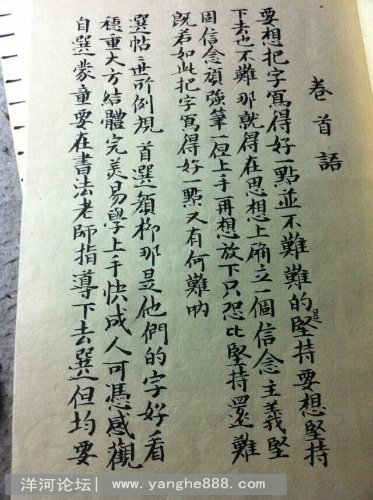 卷首語
要想把字寫得好一點並不難難的是堅持要想堅持
下去也不難那就得在思想上确立一個信念主義堅
固信念頑強筆一但上手再想放下只恐比堅持還難
既若如此把字寫得好一點又有何難吶
選帖所例規首選顔柳那是他們的字好看
穩重大方結體完美易學上手快成人可憑感觀
自選蒙童要在書法老師指導下去選但均要
洋河论坛| www.yanghe888.com